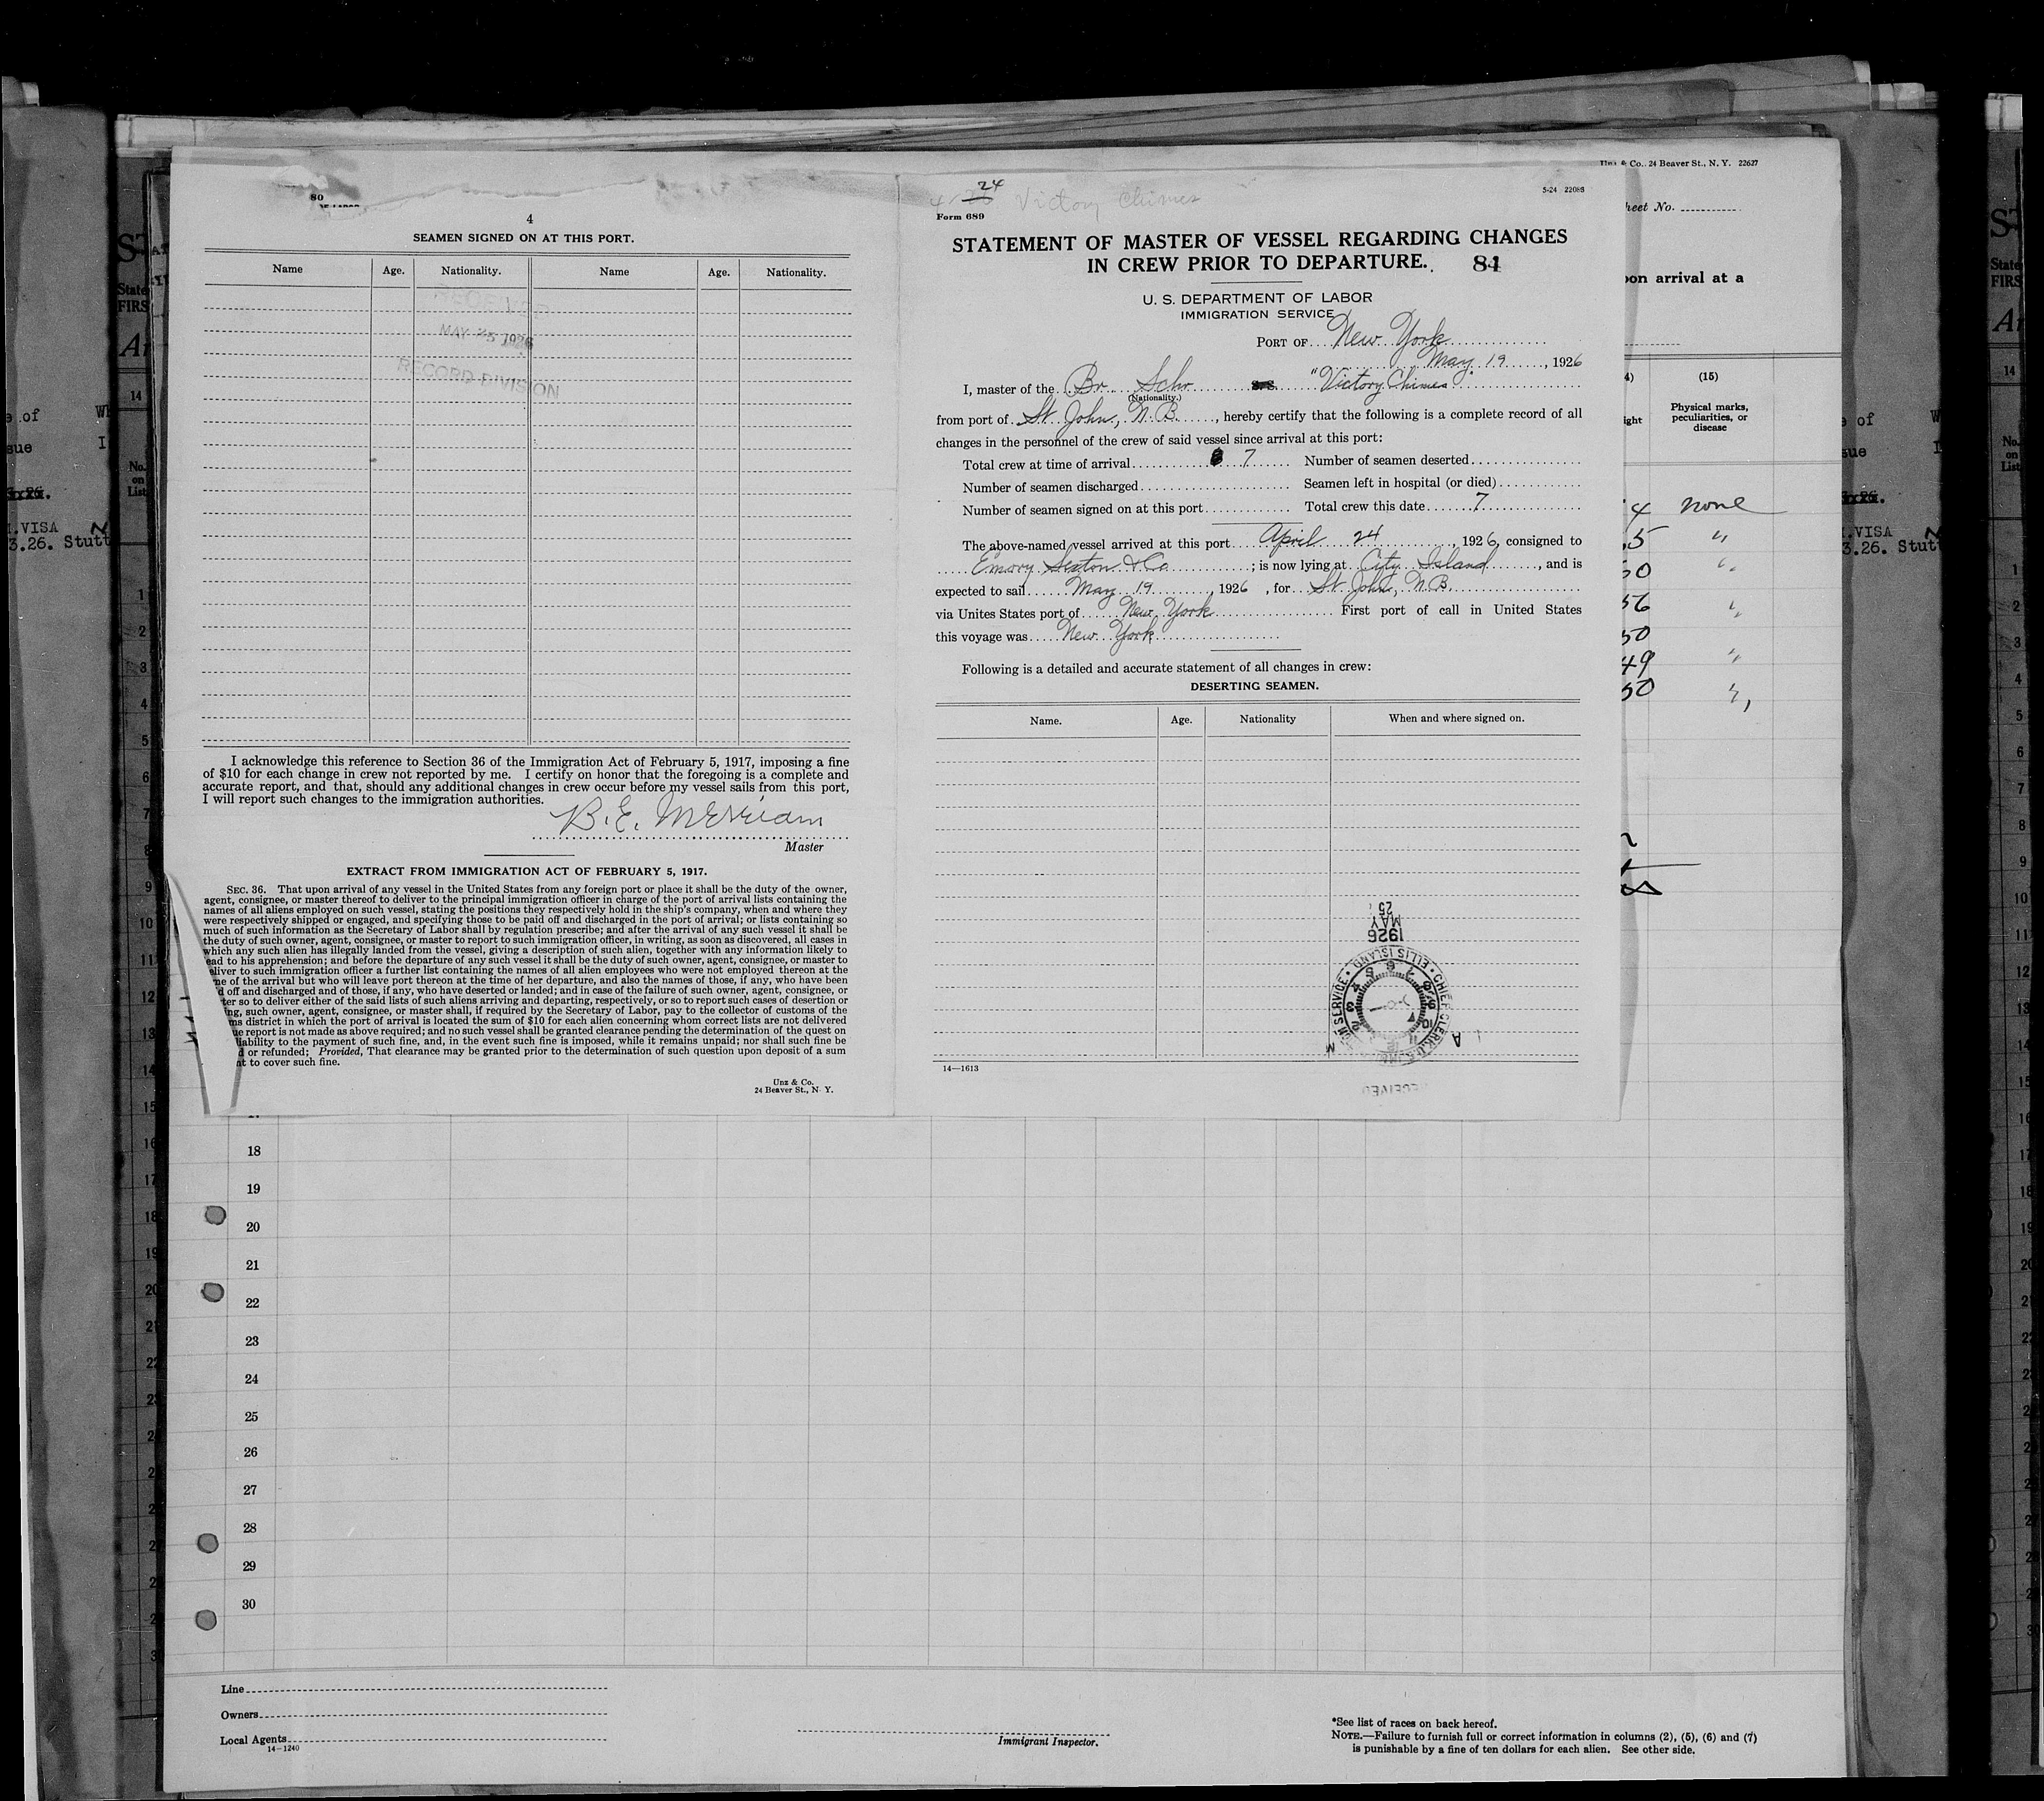 80
4
SEAMEN SIGNED ON AT THIS PORT.
Name Age. Nationality. Name Age. Nationality.
RECEIVED
MAY 25 1926
RECORD DIVISION
I acknowledge this reference to Section 36 of the Immigration Act of February 5, 1917, imposing a fine
of $10 for each change in crew not reported by me. I certify on honor that the foregoing is a complete and
accurate report, and that, should any additional changes in crew occur before my vessel sails from this port,
I will report such changes to the immigration authorities.
B. E. Merriam
Master
EXTRACT FROM IMMIGRATION ACT OF FEBRUARY 5, 1917.
SEC. 36. That upon arrival of any vessel in the United States from any foreign port or place it shall be the duty of the owner,
agent, consignee, or master thereof to deliver to the principal immigration officer in charge of the port of arrival lists containing the
names of all aliens employed on such vessel, stating the positions they respectively hold in the ship's company, when and where they
were respectively shipped or engaged, and specifying those to be paid off and discharged in the port of arrival; or lists containing so
much of such information as the Secretary of Labor shall by regulation prescribe; and after the arrival of any such vessel it shall be
the duty of such owner, agent, consignee, or master to report to such immigration officer, in writing, as soon as discovered, all cases in
which any such alien has illegally landed from the vessel, giving a description of such alien, together with any information likely to
ead to his apprehension; and before the departure of any such vessel it shall be the duty of such owner, agent, consignee, or master to
eliver to such immigration officer a further list containing the names of all alien employees who were not employed thereon at the
me of the arrival but who will leave port thereon at the time of her departure, and also the names of those, if any, who have been
d off and discharged and of those, if any, who have deserted or landed; and in case of the failure of such owner, agent, consignee, or
ter so to deliver either of the said lists of such aliens arriving and departing, respectively, or so to report such cases of desertion or
ng, such owner, agent, consignee, or master shall, if required by the Secretary of Labor, pay to the collector of customs of the
ms district in which the port of arrival is located the sum of $10 for each alien concerning whom correct lists are not delivered
ue report is not made as above required; and no such vessel shall be granted clearance pending the determination of the quest on
liability to the payment of such fine, and, in the event such fine is imposed, while it remains unpaid; nor shall such fine be
d or refunded; Provided, That clearance may be granted prior to the determination of such question upon deposit of a sum
nt to cover such fine.
Unz & Co.
24 Beaver St., N. Y.
24
Victory Chimes
Form 689
5-24 22088
STATEMENT OF MASTER OF VESSEL REGARDING CHANGES
IN CREW PRIOR TO DEPARTURE. 81
U. S. DEPARTMENT OF LABOR
IMMIGRATION SERVICE
PORT OF New York
May 19, 1926
I, master of the Br Schr "Victory Chimes
(Nationality.)
from port of St. John, N. B., hereby certify that the following is a complete record of all
changes in the personnel of the crew of said vessel since arrival at this port:
Total crew at time of arrival 7 Number of seamen deserted
Number of seamen discharged Seamen left in hospital (or died)
Number of seamen signed on at this port Total crew this date 7
The above-named vessel arrived at this port April 24, 1926, consigned to
Emory Sexton & Co; is now lying at City Island, and is
expected to sail May 19, 1926, for St John, N. B.
via Unites States port of New York First port of call in United States
this voyage was New York
Following is a detailed and accurate statement of all changes in crew:
DESERTING SEAMEN.
Name. Age. Nationality When and where signed on.
1926
MAY
25
CHIEF CLERK, U.S. IMM'N SERVICE • ELLIS ISLAND •
RECEIVED
14—1613
Unz & Co., 24 Beaver St., N. Y. 22627
heet No.
pon arrival at a
4) (15)
ight Physical marks,
peculiarities, or
disease
4 none
5 "
50 "
56 "
50
49 "
50 "
18
19
20
21
22
23
24
25
26
27
28
29
30
Line
Owners
Local Agents
14-1240
Immigrant Inspector.
*See list of races on back hereof.
NOTE.—Failure to furnish full or correct information in columns (2), (5), (6) and (7)
is punishable by a fine of ten dollars for each alien. See other side.
State
FIRS
14
No.
on
List
1
2
3
4
5
6
7
8
9
10
11
12
13
14
15
16
17
18
19
20
21
22
e of
sue
.VISA
3.26. Stutt